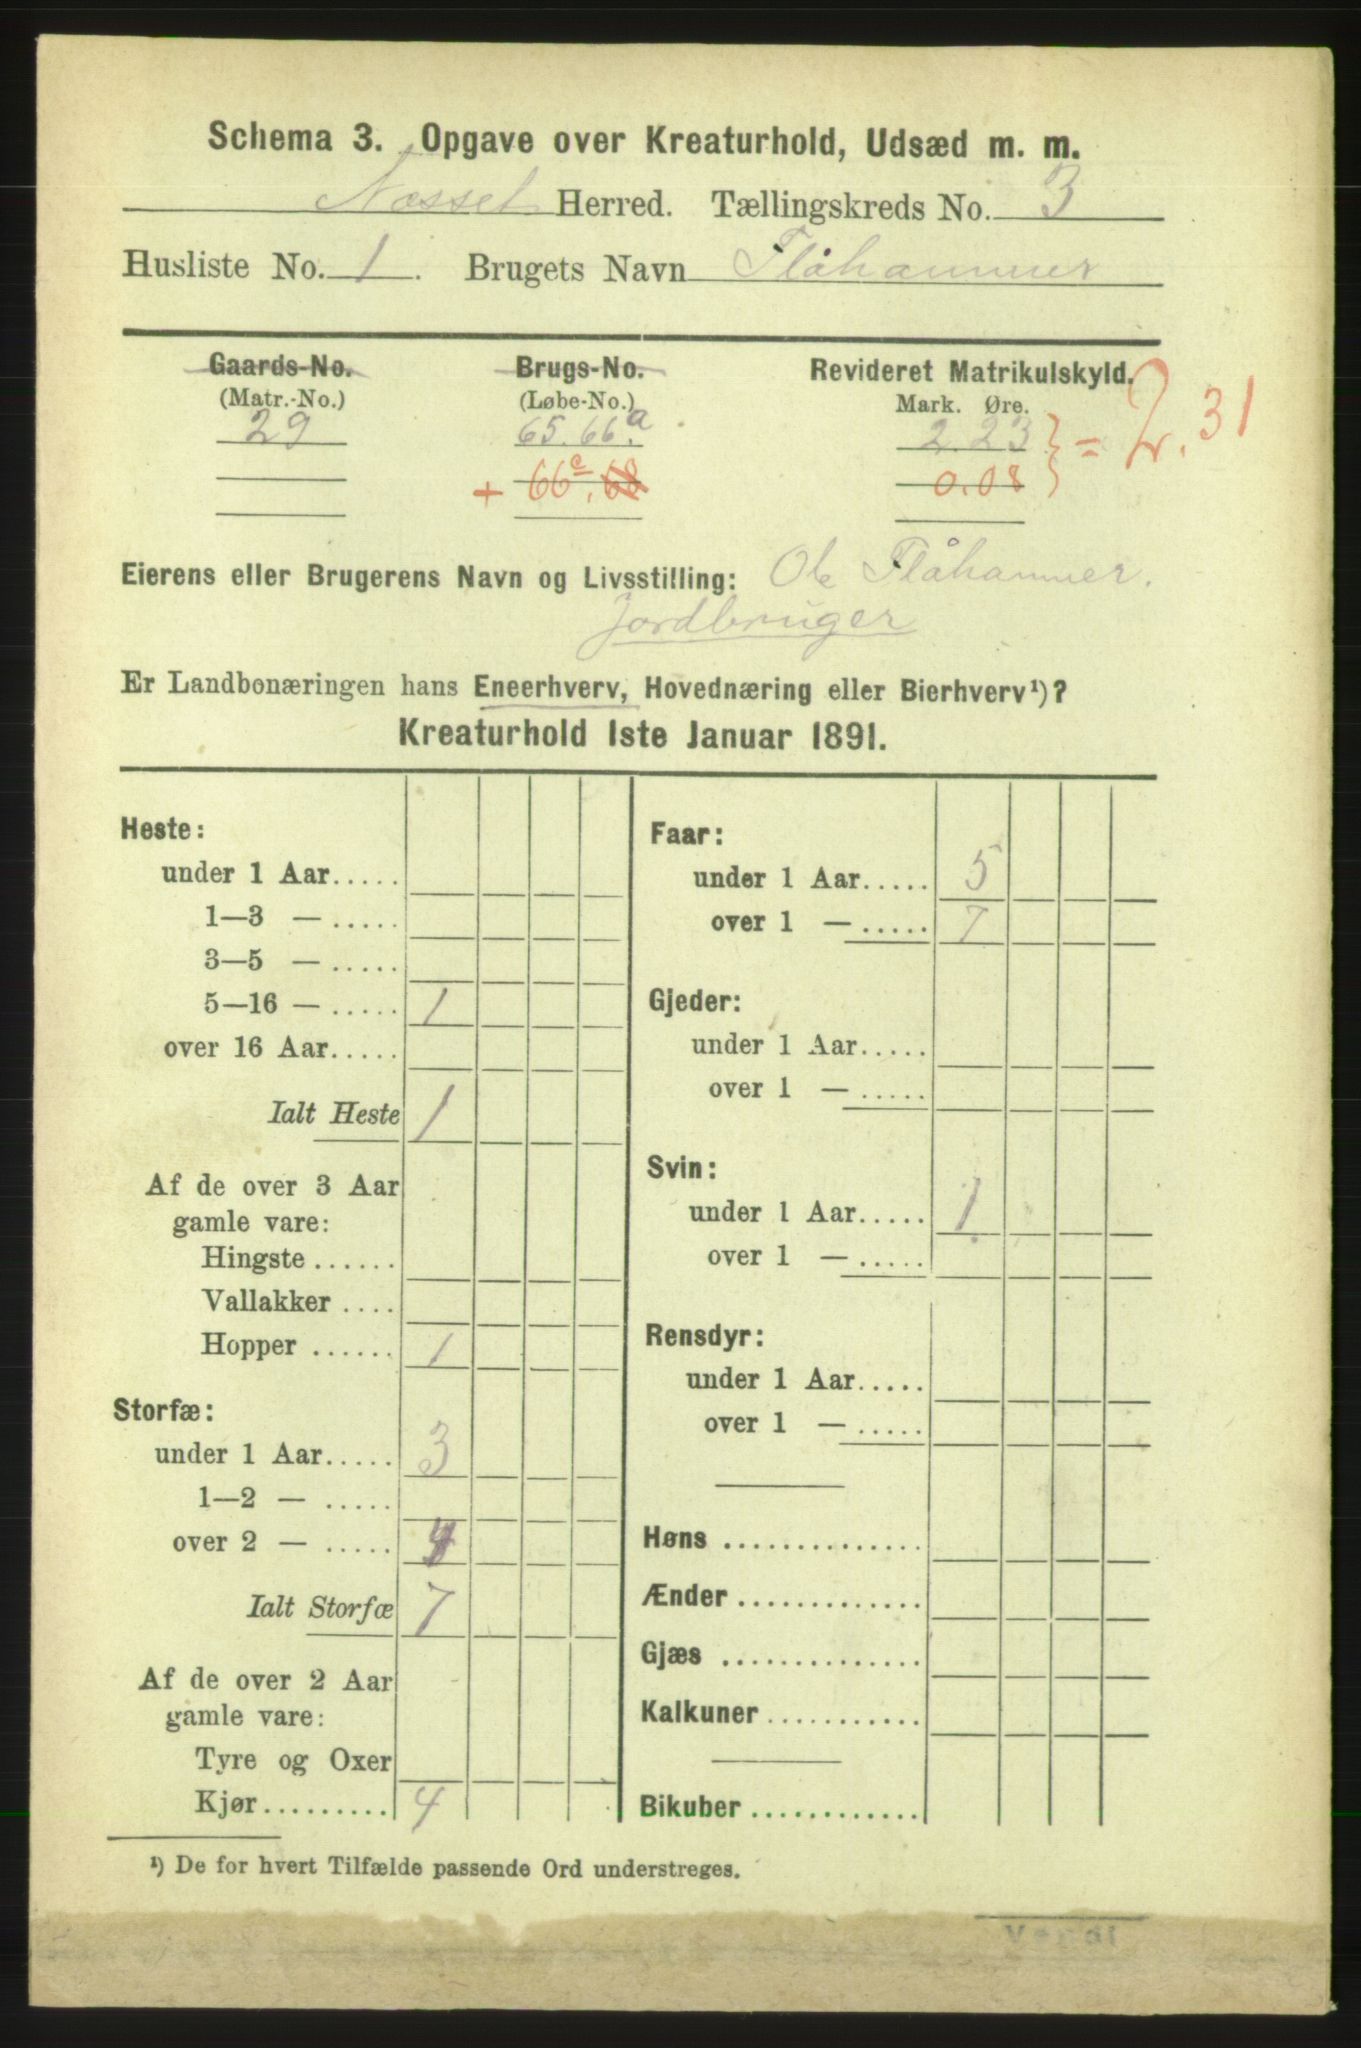 Schema 3. Opgave over Kreaturhold, Udsæd m. m.
Nesset Herred. Tællingskreds No. 3
Husliste No. 1. Brugets Navn Flåhammer
Gaards-No. Brugs-No. Revideret Matrikulskyld.
(Matr.-No.) (Løbe-No.) Mark. Øre.
29 65. 66.a 2. 23 } = 2.31
+ 66e. 68 0.08
Eierens eller Brugerens Navn og Livsstilling: Ole Flåhammer.
Jordbruger
Er Landbonæringen hans Eneerhverv, Hovednæring eller Bierhverv¹)?
Kreaturhold 1ste Januar 1891.
Heste:
under 1 Aar.....
1—3 — .....
3—5 — .....
5—16 — ..... 1
over 16 Aar.....
Ialt Heste 1
Af de over 3 Aar
gamle vare:
Hingste ......
Vallakker ....
Hopper ...... 1
Storfæ:
under 1 Aar..... 3
1—2 — .....
over 2 — ..... 4
Ialt Storfæ 7
Af de over 2 Aar
gamle vare:
Tyre og Oxer
Kjør......... 4
Faar:
under 1 Aar..... 5
over 1 — ..... 7
Gjeder:
under 1 Aar.....
over 1 — .....
Svin:
under 1 Aar..... 1.
over 1 — .....
Rensdyr:
under 1 Aar.....
over 1 — .....
Høns ..............
Ænder .............
Gjæs ..............
Kalkuner ...........
Bikuber ............
¹) De for hvert Tilfælde passende Ord understreges.
Vend!